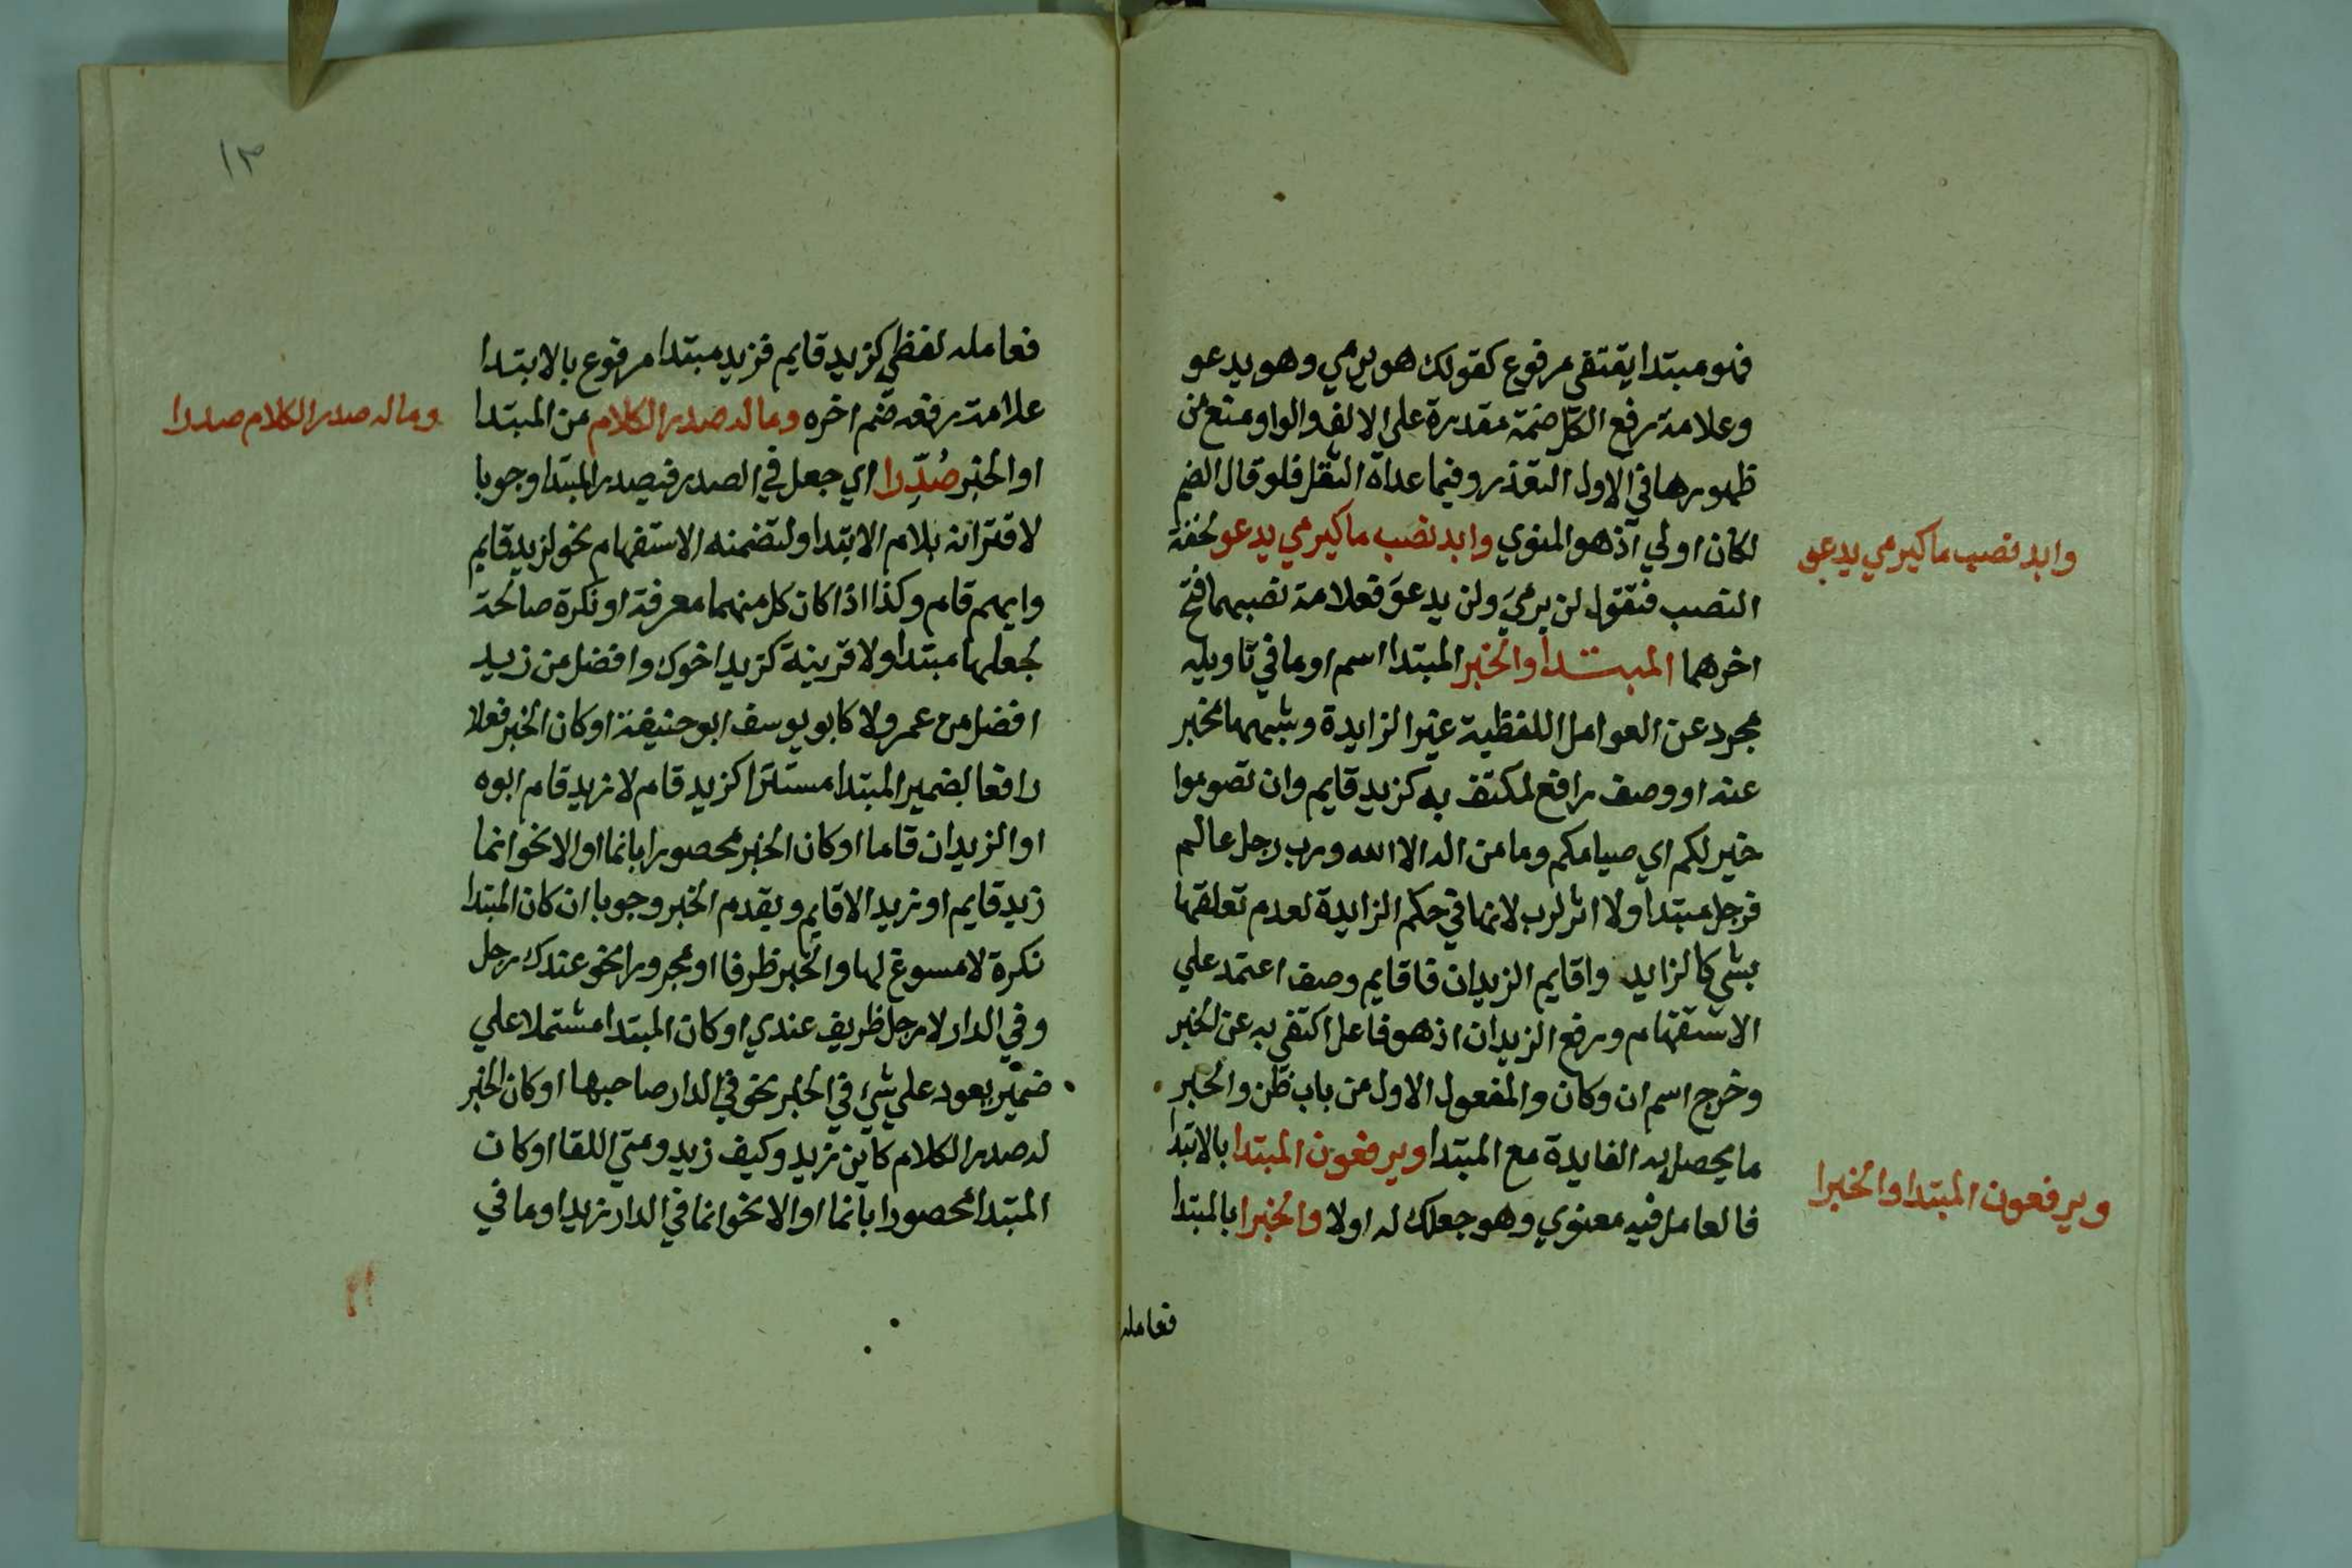 فهو مبتدا يقتفى مرفوع كقولك هو يرمي وهو يدعو
وعلامة رفع الكل ضمة مقدرة على الالف والواو ومنع من
ظهورها في الاول التعذر وفيما عداه الثقل فلو قال الضم
لكان اولي اذ هو المنوي وابد نصب ما كيرمي يدعو لخفة
وابد نصب ما كيرمي يدعو
النصب فتقول لن يرميَ ولن يدعوَ فعلامة نصبهما فتح
اخرهما المبتدا والخبر المبتدا اسم او ما في تاويله
مجرد عن العوامل اللفظية غير الزايدة وشبهها مخبر
عنه او وصف رافع لمكتف به كزيد قايم وان تصوموا
خير لكم اي صيامكم وما من اله الا الله ورب رجل عالم
فرجل مبتدا ولا اثر لرب لانها في حكم الزايدة لعدم تعلقها
بشي كالزايد واقايم الزيدان فاقايم وصف اعتمد علي
الاستفهام ورفع الزيدان اذ هو فاعل اكتفي به عن الخبر
وخرج اسم ان وكان والمفعول الاول من باب ظن والخبر
ما يحصل به الفايدة مع المبتدا ويرفعون المبتدا بالابتدا
ويرفعون المبتدا والخبرا
فالعامل فيه معنوي وهو جعلك له اولا والخبرا بالمبتدا
فعامله
١٣
فعامله لفظي كزيد قايم فزيد مبتدا مرفوع بالابتدا
علامة رفعه ضم اخره وما له صدر الكلام من المبتدا
وما له صدر الكلام صدرا
او الخبر صُدِّرا اي جعل في الصدر فيصدر المبتدا وجوبا
لاقترانه بلام الابتدا ولتضمنه الاستفهام نحو لزيد قايم
وايهم قام وكذا اذا كان كل منهما معرفة او نكرة صالحة
لجعلها مبتدا ولا قرينة كزيد اخوك وافضل من زيد
افضل من عمرو لا كابو يوسف ابو حنيفة او كان الخبر فعلا
رافعا لضمير المبتدا مستترا كزيد قام لا زيد قام ابوه
او الزيدان قاما او كان الخبر محصورا بانما او الا نحو انما
زيد قايم او زيد الا قايم ويقدم الخبر وجوبا ان كان المبتدا
نكرة لا مسوغ لها والخبر ظرفا او مجرورا نحو عندك رجل
وفي الدار لا رجل ظريف عندي او كان المبتدا مشتملا علي
ضمير يعود علي شي في الخبر نحو في الدار صاحبها او كان الخبر
له صدر الكلام كاين زيد وكيف زيد ومتي اللقا او كان
المبتدا محصورا بانما او الا نحو انما في الدار زيد او ما في